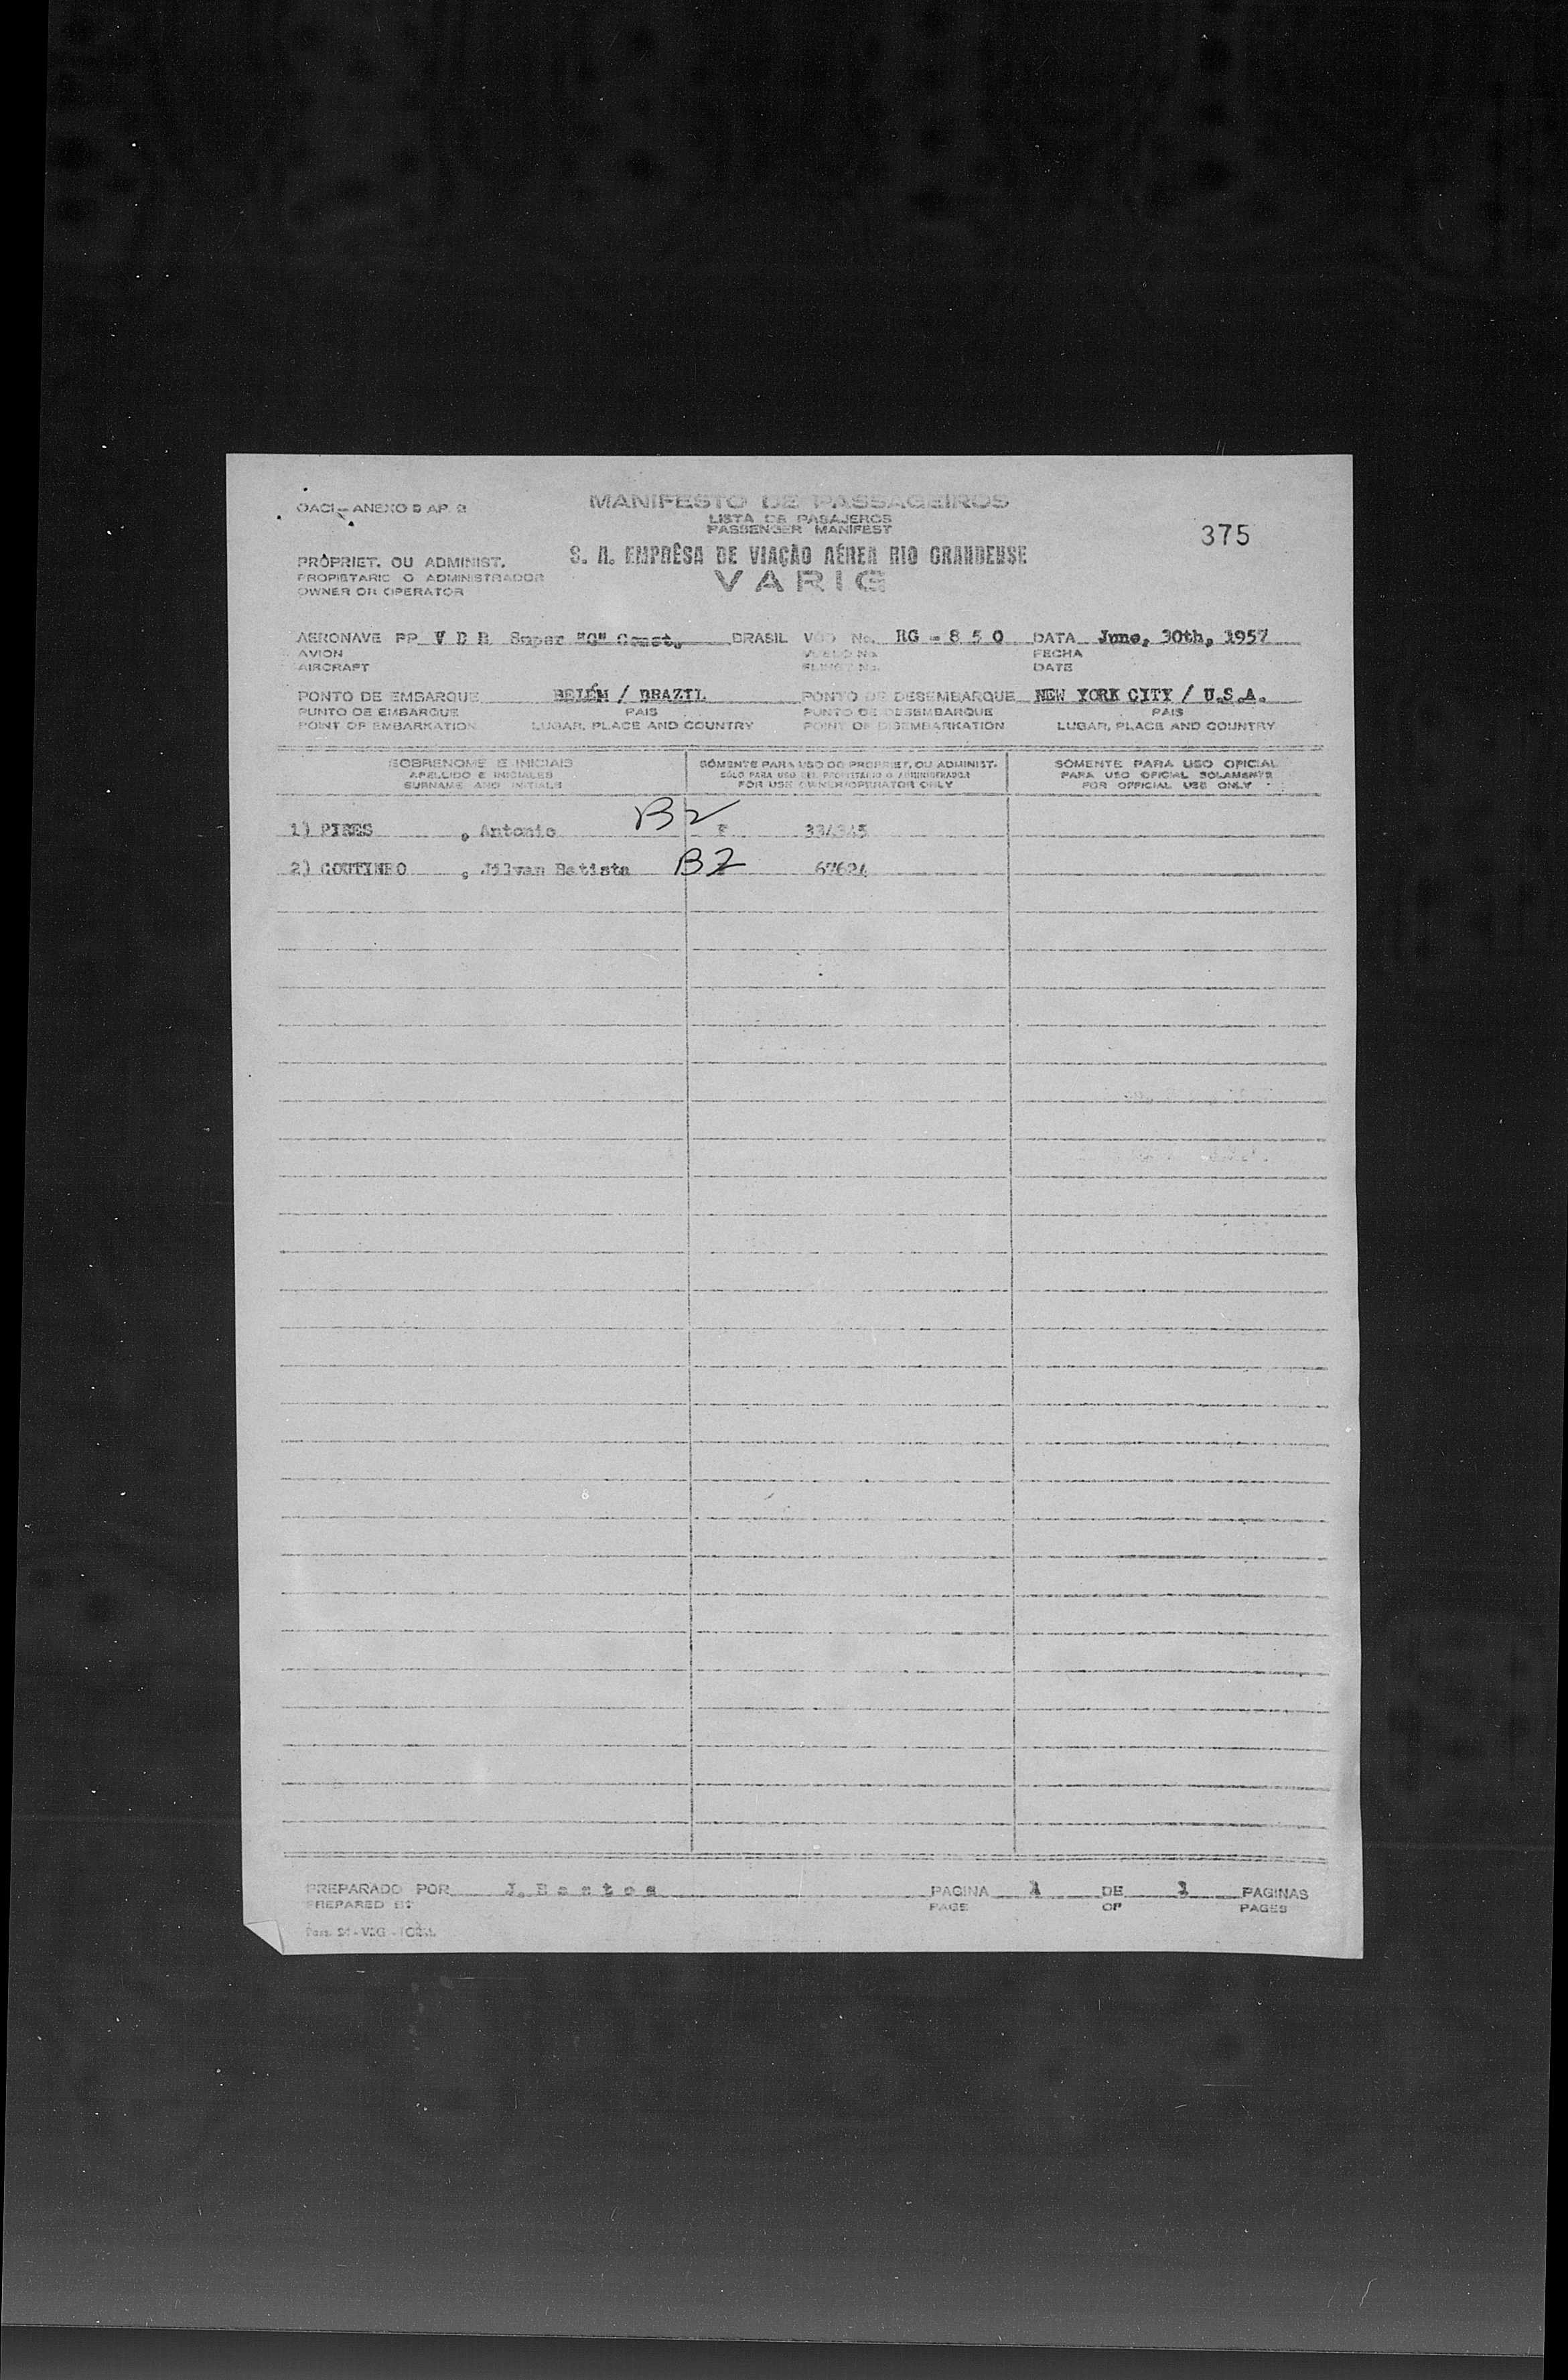 OACI - ANEXO 9 AP. 2
MANIFESTO DE PASSAGEIROS
LISTA DE PASAJEROS
PASSENGER MANIFEST
375
S. A. EMPRÊSA DE VIAÇÃO AÉREA RIO GRANDENSE
VARIG
PROPRIET. OU ADMINIST.
PROPIETARIO O ADMINISTRADOR
OWNER OR OPERATOR
AERONAVE PP V D B Super "G" Const. BRASIL VÔO No. RG - 8 5 0 DATA June, 30th, 1957
AVION VUELO No. FECHA
AIRCRAFT FLIGHT No. DATE
PONTO DE EMBARQUE BELÉM / BRAZIL PONTO DE DESEMBARQUE NEW YORK CITY / U.S.A.
PUNTO DE EMBARQUE PAIS PUNTO DE DESEMBARQUE PAIS
POINT OF EMBARKATION LUGAR, PLACE AND COUNTRY POINT OF DISEMBARKATION LUGAR, PLACE AND COUNTRY
SOBRENOME E INICIAIS SÓMENTE PARA USO DO PROPRIET. OU ADMINIST. SÓMENTE PARA USO OFICIAL
APELLIDO E INICIALES SÓLO PARA USO DEL PROPIETARIO O ADMINISTRADOR PARA USO OFICIAL SOLAMENTE
SURNAME AND INITIALS FOR USE OWNER/OPERATOR ONLY FOR OFFICIAL USE ONLY
1) PIRES , Antonio BZ F 334345
2) COUTINHO , Jilvan Batista BZ 67624
PREPARADO POR J. B a s t o s PAGINA 1 DE 1 PAGINAS
PREPARED BY PAGE OF PAGES